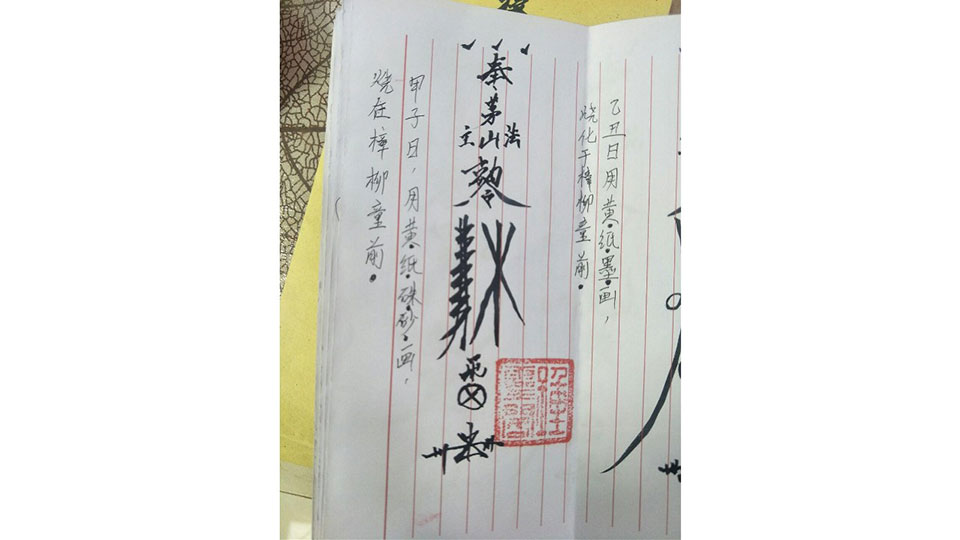 乙丑日用黄纸墨画，
烧化于樟柳童前。
奉
茅山
法主
勅令
甲子日，用黄纸硃砂画，
烧在樟柳童前。